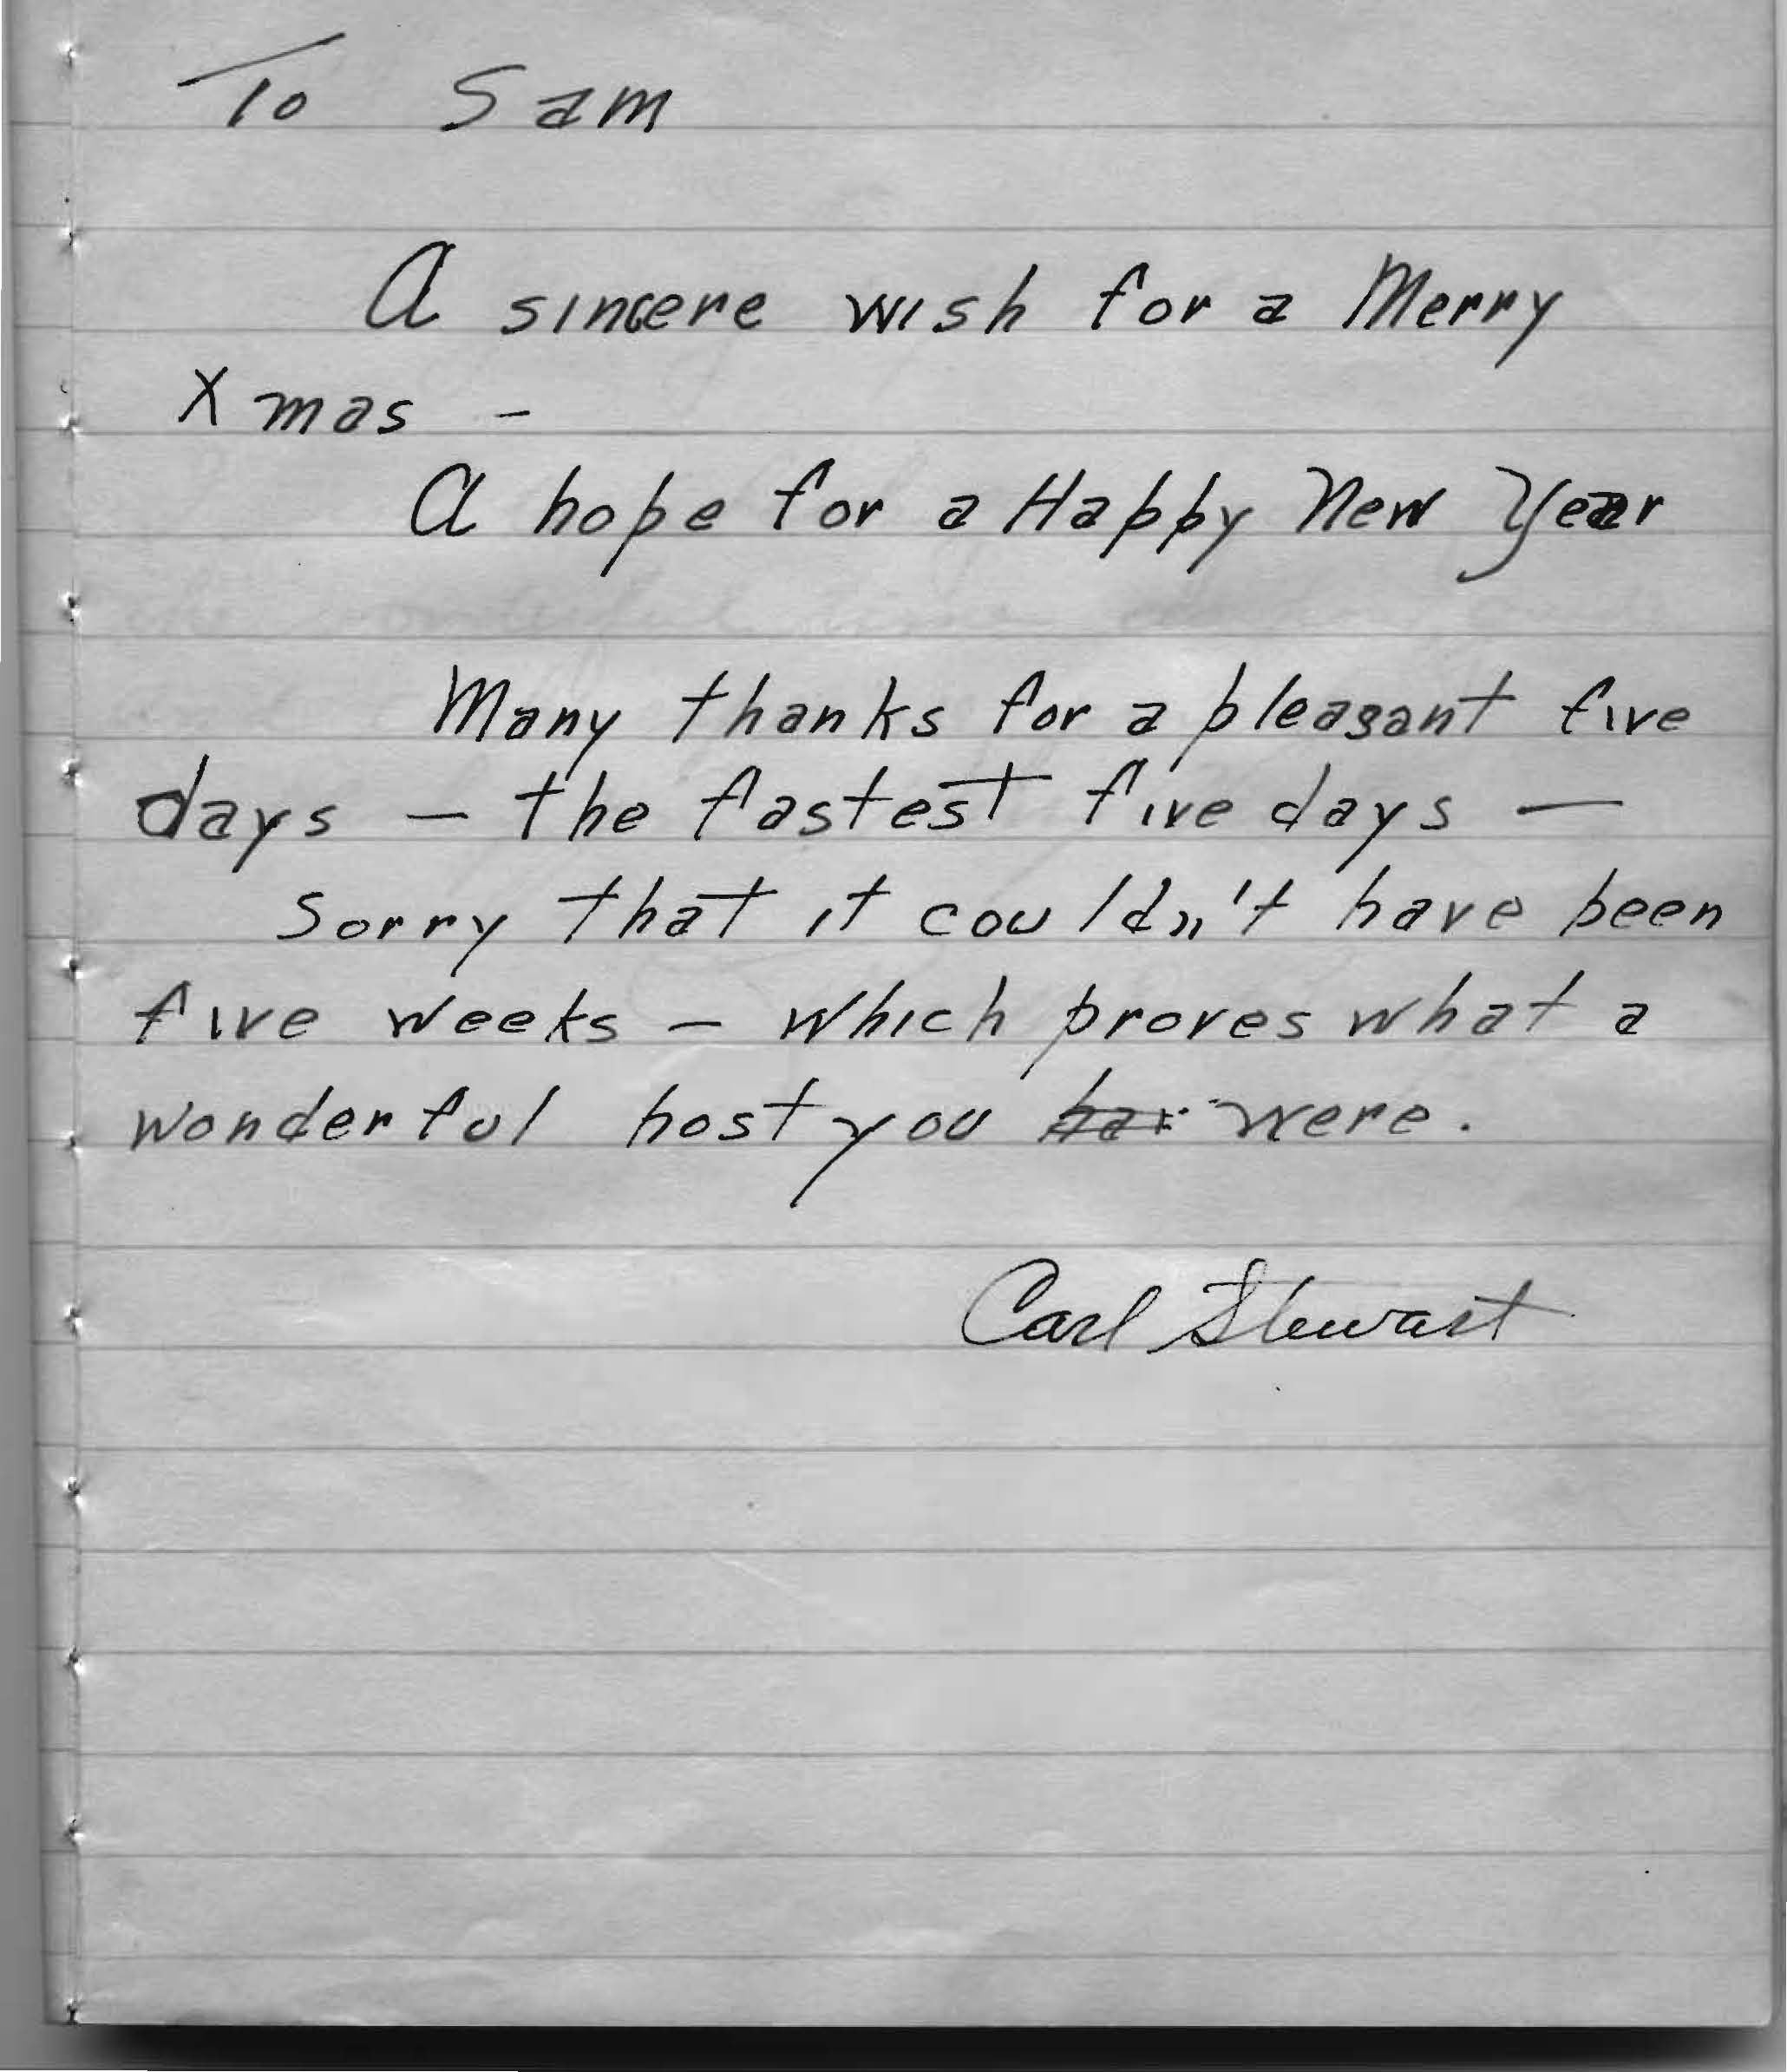 To Sam
A sincere wish for a Merry
Xmas -
A hope for a Happy New Year
Many thanks for a pleasant five
days - the fastest five days -
Sorry that it couldn't have been
five weeks - which proves what a
wonderful host you were.
Carl Stewart